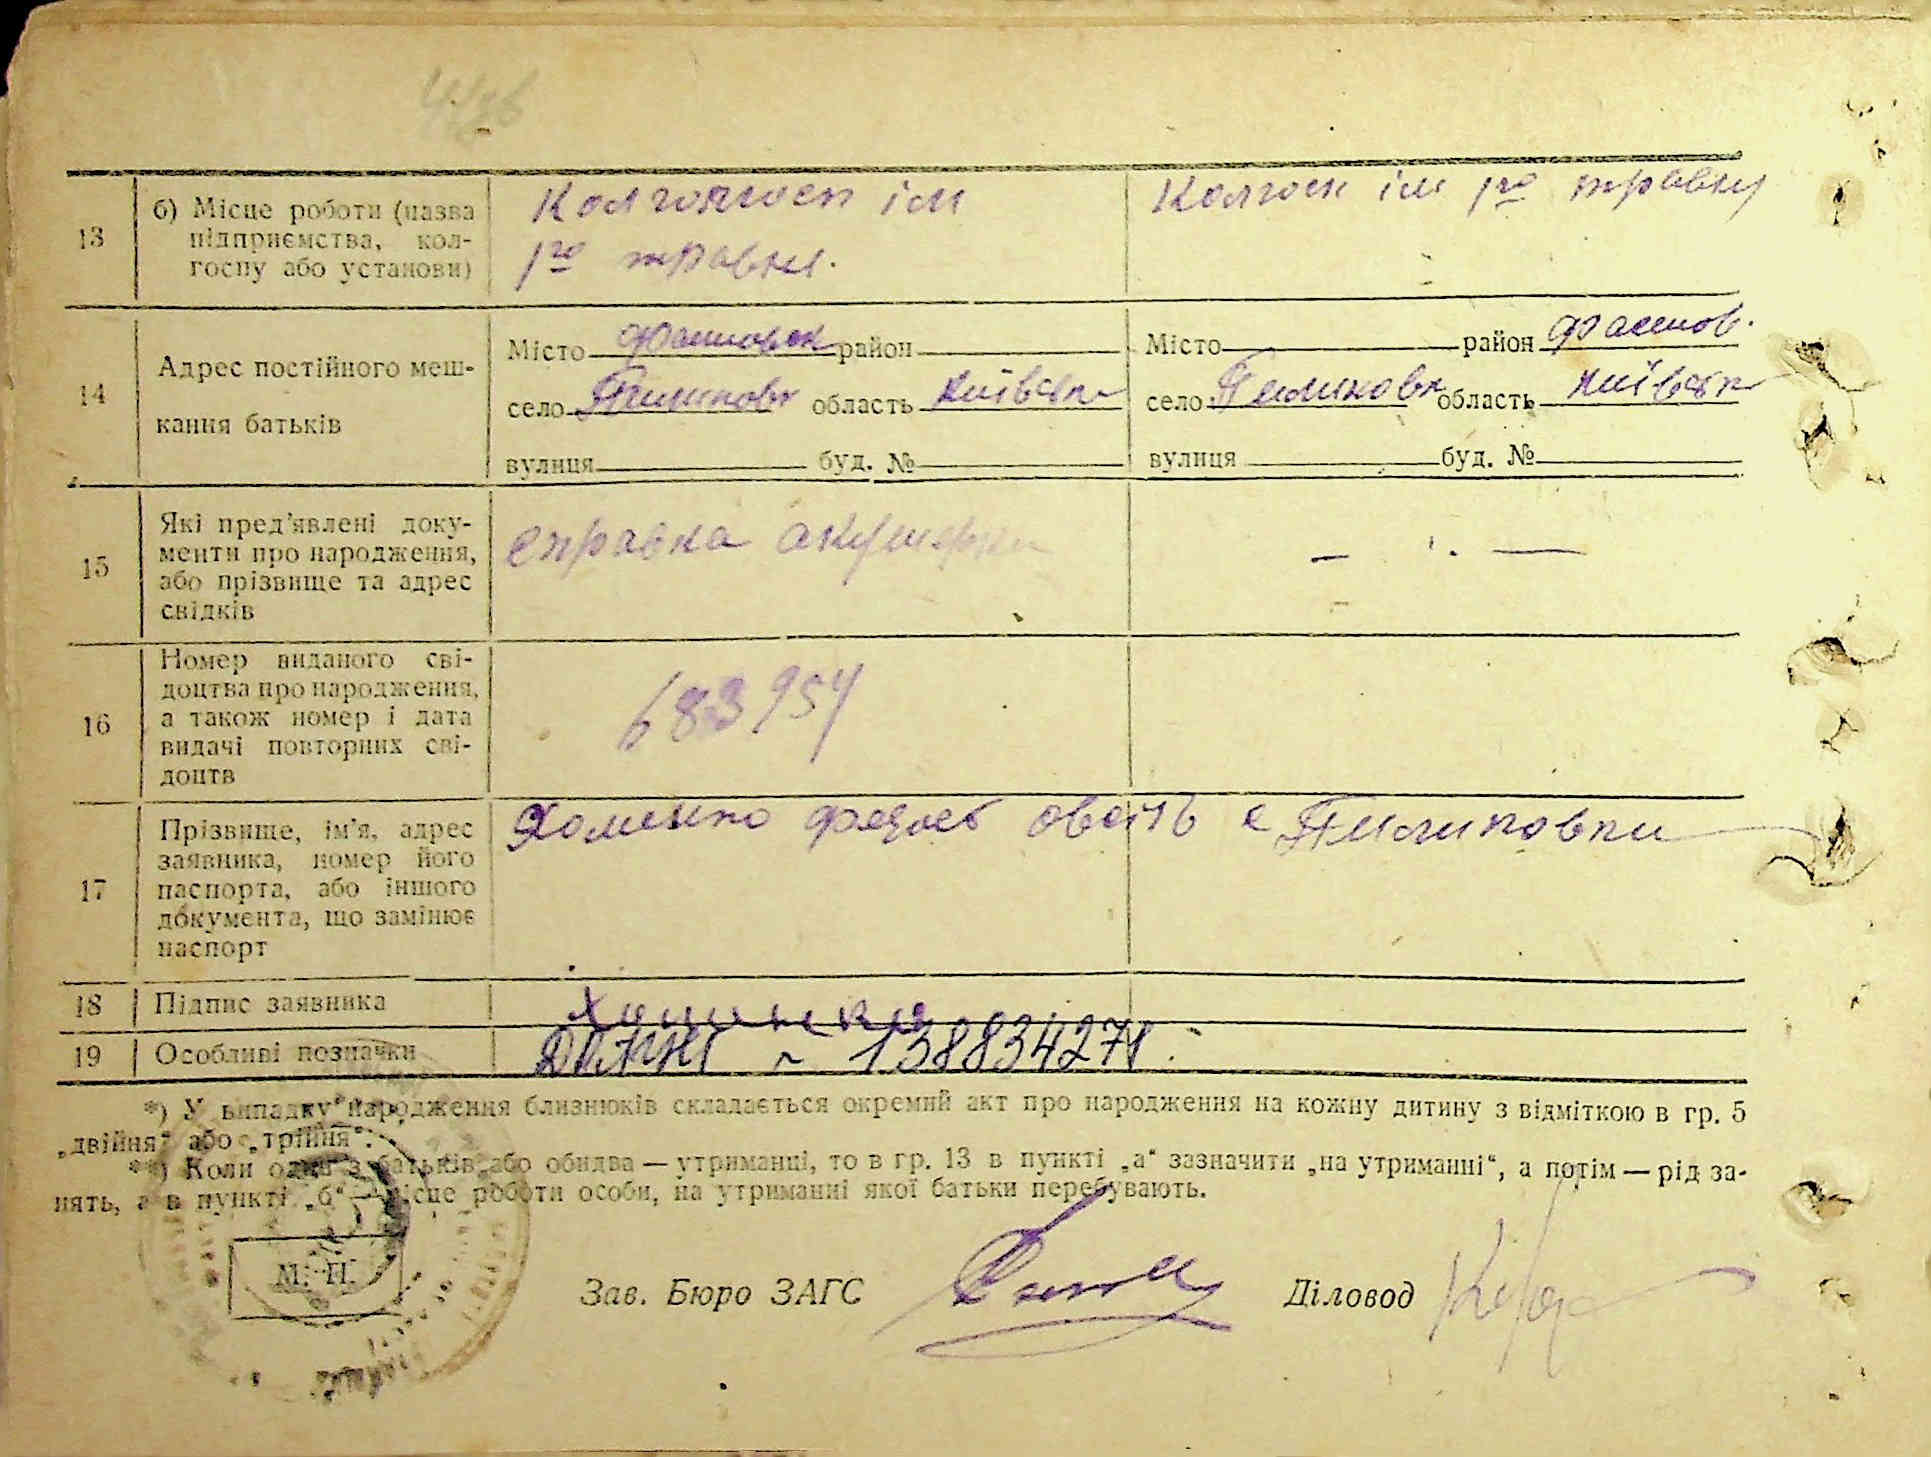 13
б) Місце роботи (назва
підприємства, кол-
госпу або установи)
Колгоспгосп ім
1го травня.
Колгосп ім 1го травня
14
Адрес постійного меш-
кання батьків
Місто район
село Пилиповк область Київськ
вулиця буд. №
Місто район Фастов.
село Пилиповк область Київськ
вулиця буд. №
15
Які пред'явлені доку-
менти про народження,
або прізвище та адрес
свідків
справка акушерки
16
Номер виданого сві-
доцтва про народження,
а також номер і дата
видачі повторних сві-
доцтв
683954
17
Прізвище, ім'я, адрес
заявника, номер його
паспорта, або іншого
документа, що замінює
паспорт
Хоменко с Пилиповки
18 Підпис заявника
19 Особливі позначки
~ 138834271.
*) У випадку народження близнюків складається окремий акт про народження на кожну дитину з відміткою в гр. 5
„двійня“ або „трійня“.
**) Коли один з батьків або обидва — утриманці, то в гр. 13 в пункті „а“ зазначити „на утриманні“, а потім — рід за-
нять, а в пункті „б“ — місце роботи особи, на утриманні якої батьки перебувають.
М. П.
Зав. Бюро ЗАГС
Діловод